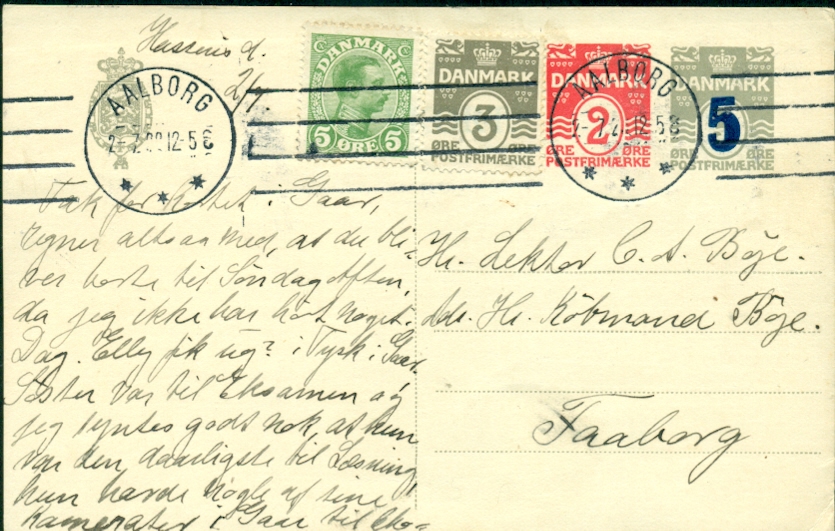 Hasseris d.
2/7.
DANMARK
5 ØRE 5
DANMARK
3
ØRE ØRE
POSTFRIMÆRKE
DANMARK
2
ØRE ØRE
POSTFRIMÆRKE
DANMARK
5
ØRE ØRE
POSTFRIMÆRKE
AALBORG
12-5
AALBORG
12-5
Tak for Kortet i Gaar,
regner altsaa med, at du bli-
ver borte til Søndag Aften,
da jeg ikke har hørt noget i
Dag. Elly fik ug? i Tysk i Gaar.
Søster var til Eksamen og
jeg syntes godt nok, at hun
var den daarligste til Læsning,
hun havde nogle af sine
Kamerater i Gaar til
Hr. Lektor C. A. Bøje.
Adr. Hr. Købmand Bøje.
Faaborg